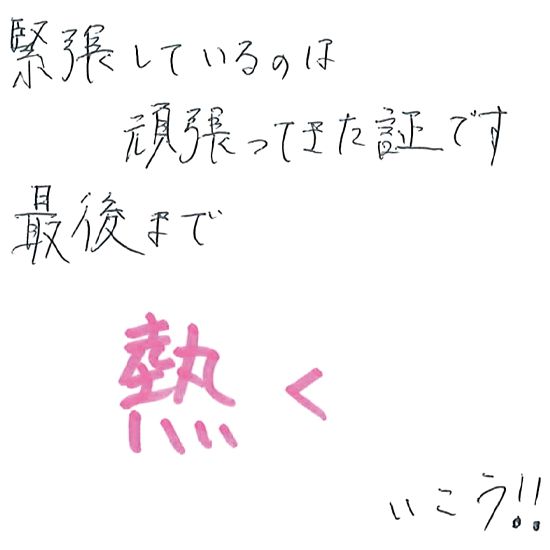 緊張しているのは
頑張ってきた証です
最後まで
熱く
いこう!!